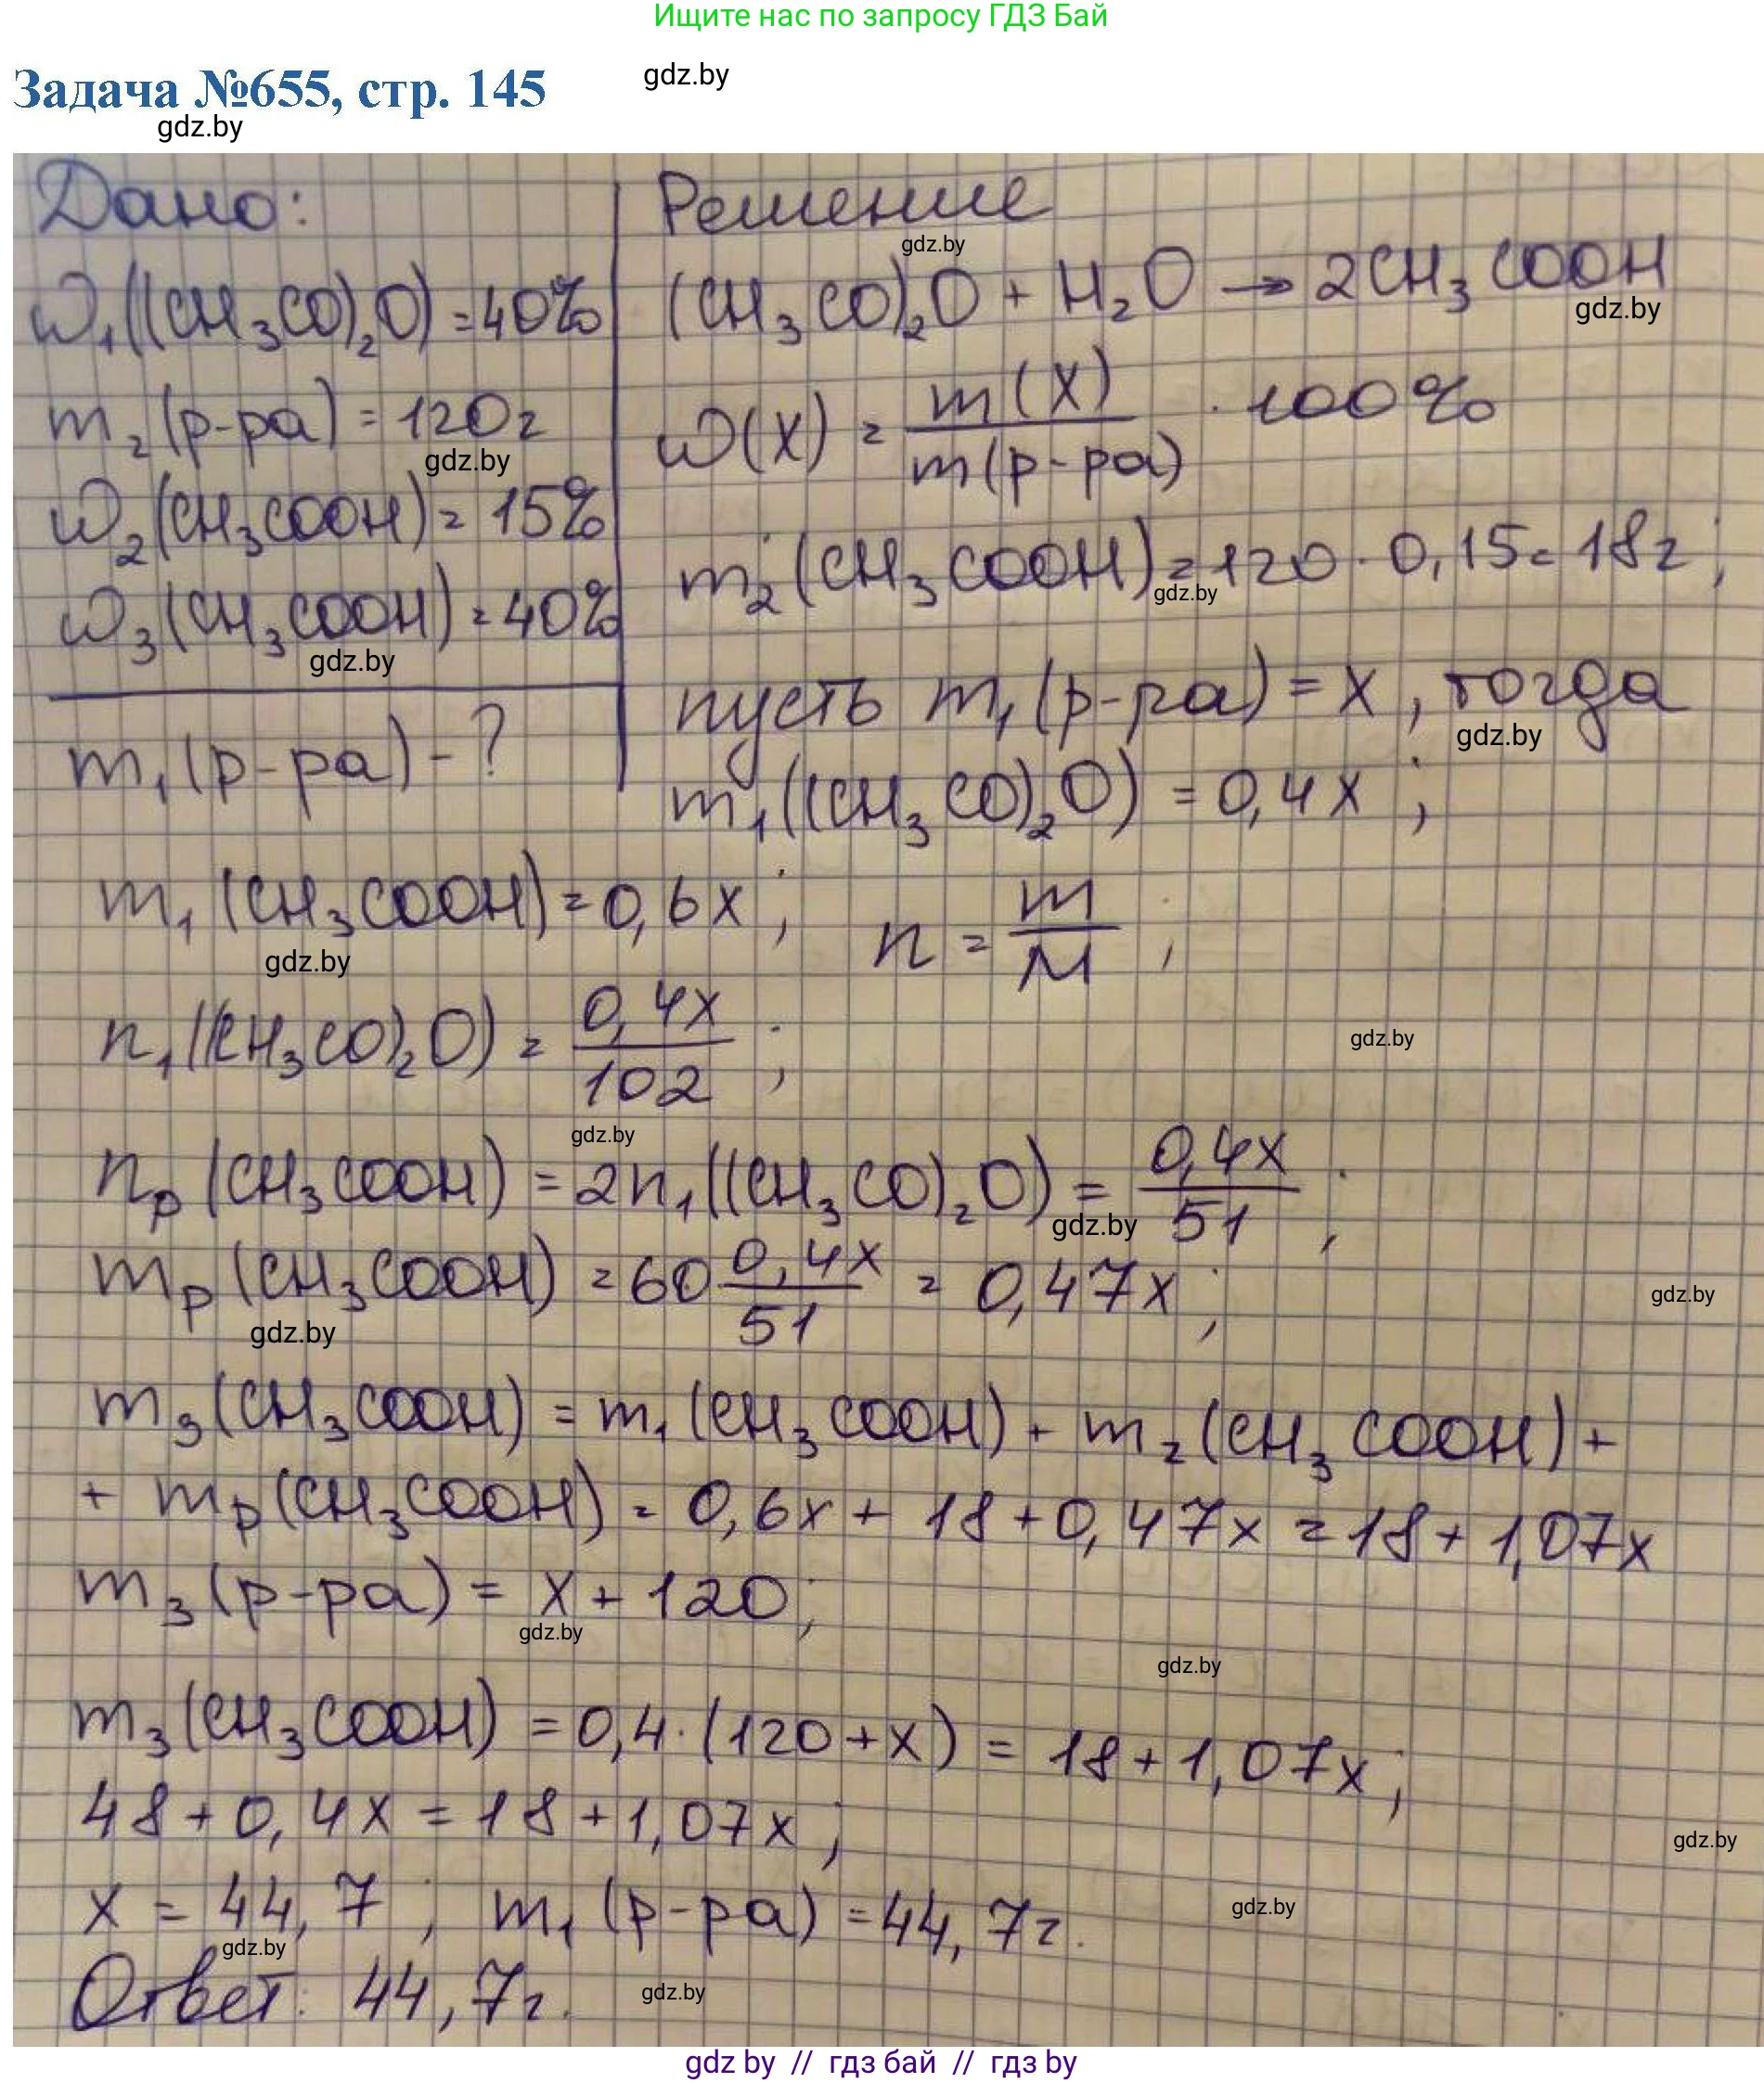 Ищите нас по запросу ГДЗ Бай
Задача №655, стр. 145
gdz.by
gdz.by
Дано:
ω₁((CH₃CO)₂O) = 40%
m₂(р-ра) = 120г
gdz.by
ω₂(CH₃COOH) = 15%
ω₃(CH₃COOH) = 40%
gdz.by
m₁(р-ра) - ?
Решение
gdz.by
(CH₃CO)₂O + H₂O → 2CH₃COOH
gdz.by
ω(X) = m(X) / m(р-ра) · 100%
m₂(CH₃COOH) = 120 · 0,15 = 18г;
gdz.by
пусть m₁(р-ра) = x, тогда
gdz.by
m₁((CH₃CO)₂O) = 0,4x;
m₁(CH₃COOH) = 0,6x; n = m / M;
gdz.by
n₁((CH₃CO)₂O) = 0,4x / 102;
gdz.by
gdz.by
nр(CH₃COOH) = 2n₁((CH₃CO)₂O) = 0,4x / 51;
gdz.by
mр(CH₃COOH) = 60 0,4x / 51 = 0,47x;
gdz.by
gdz.by
m₃(CH₃COOH) = m₁(CH₃COOH) + m₂(CH₃COOH) +
+ mр(CH₃COOH) = 0,6x + 18 + 0,47x = 18 + 1,07x
m₃(р-ра) = x + 120;
gdz.by
gdz.by
m₃(CH₃COOH) = 0,4 · (120 + x) = 18 + 1,07x;
48 + 0,4x = 18 + 1,07x;
gdz.by
x = 44,7; m₁(р-ра) = 44,7г.
gdz.by
gdz.by
Ответ: 44,7г.
gdz.by
gdz by // гдз бай // гдз by